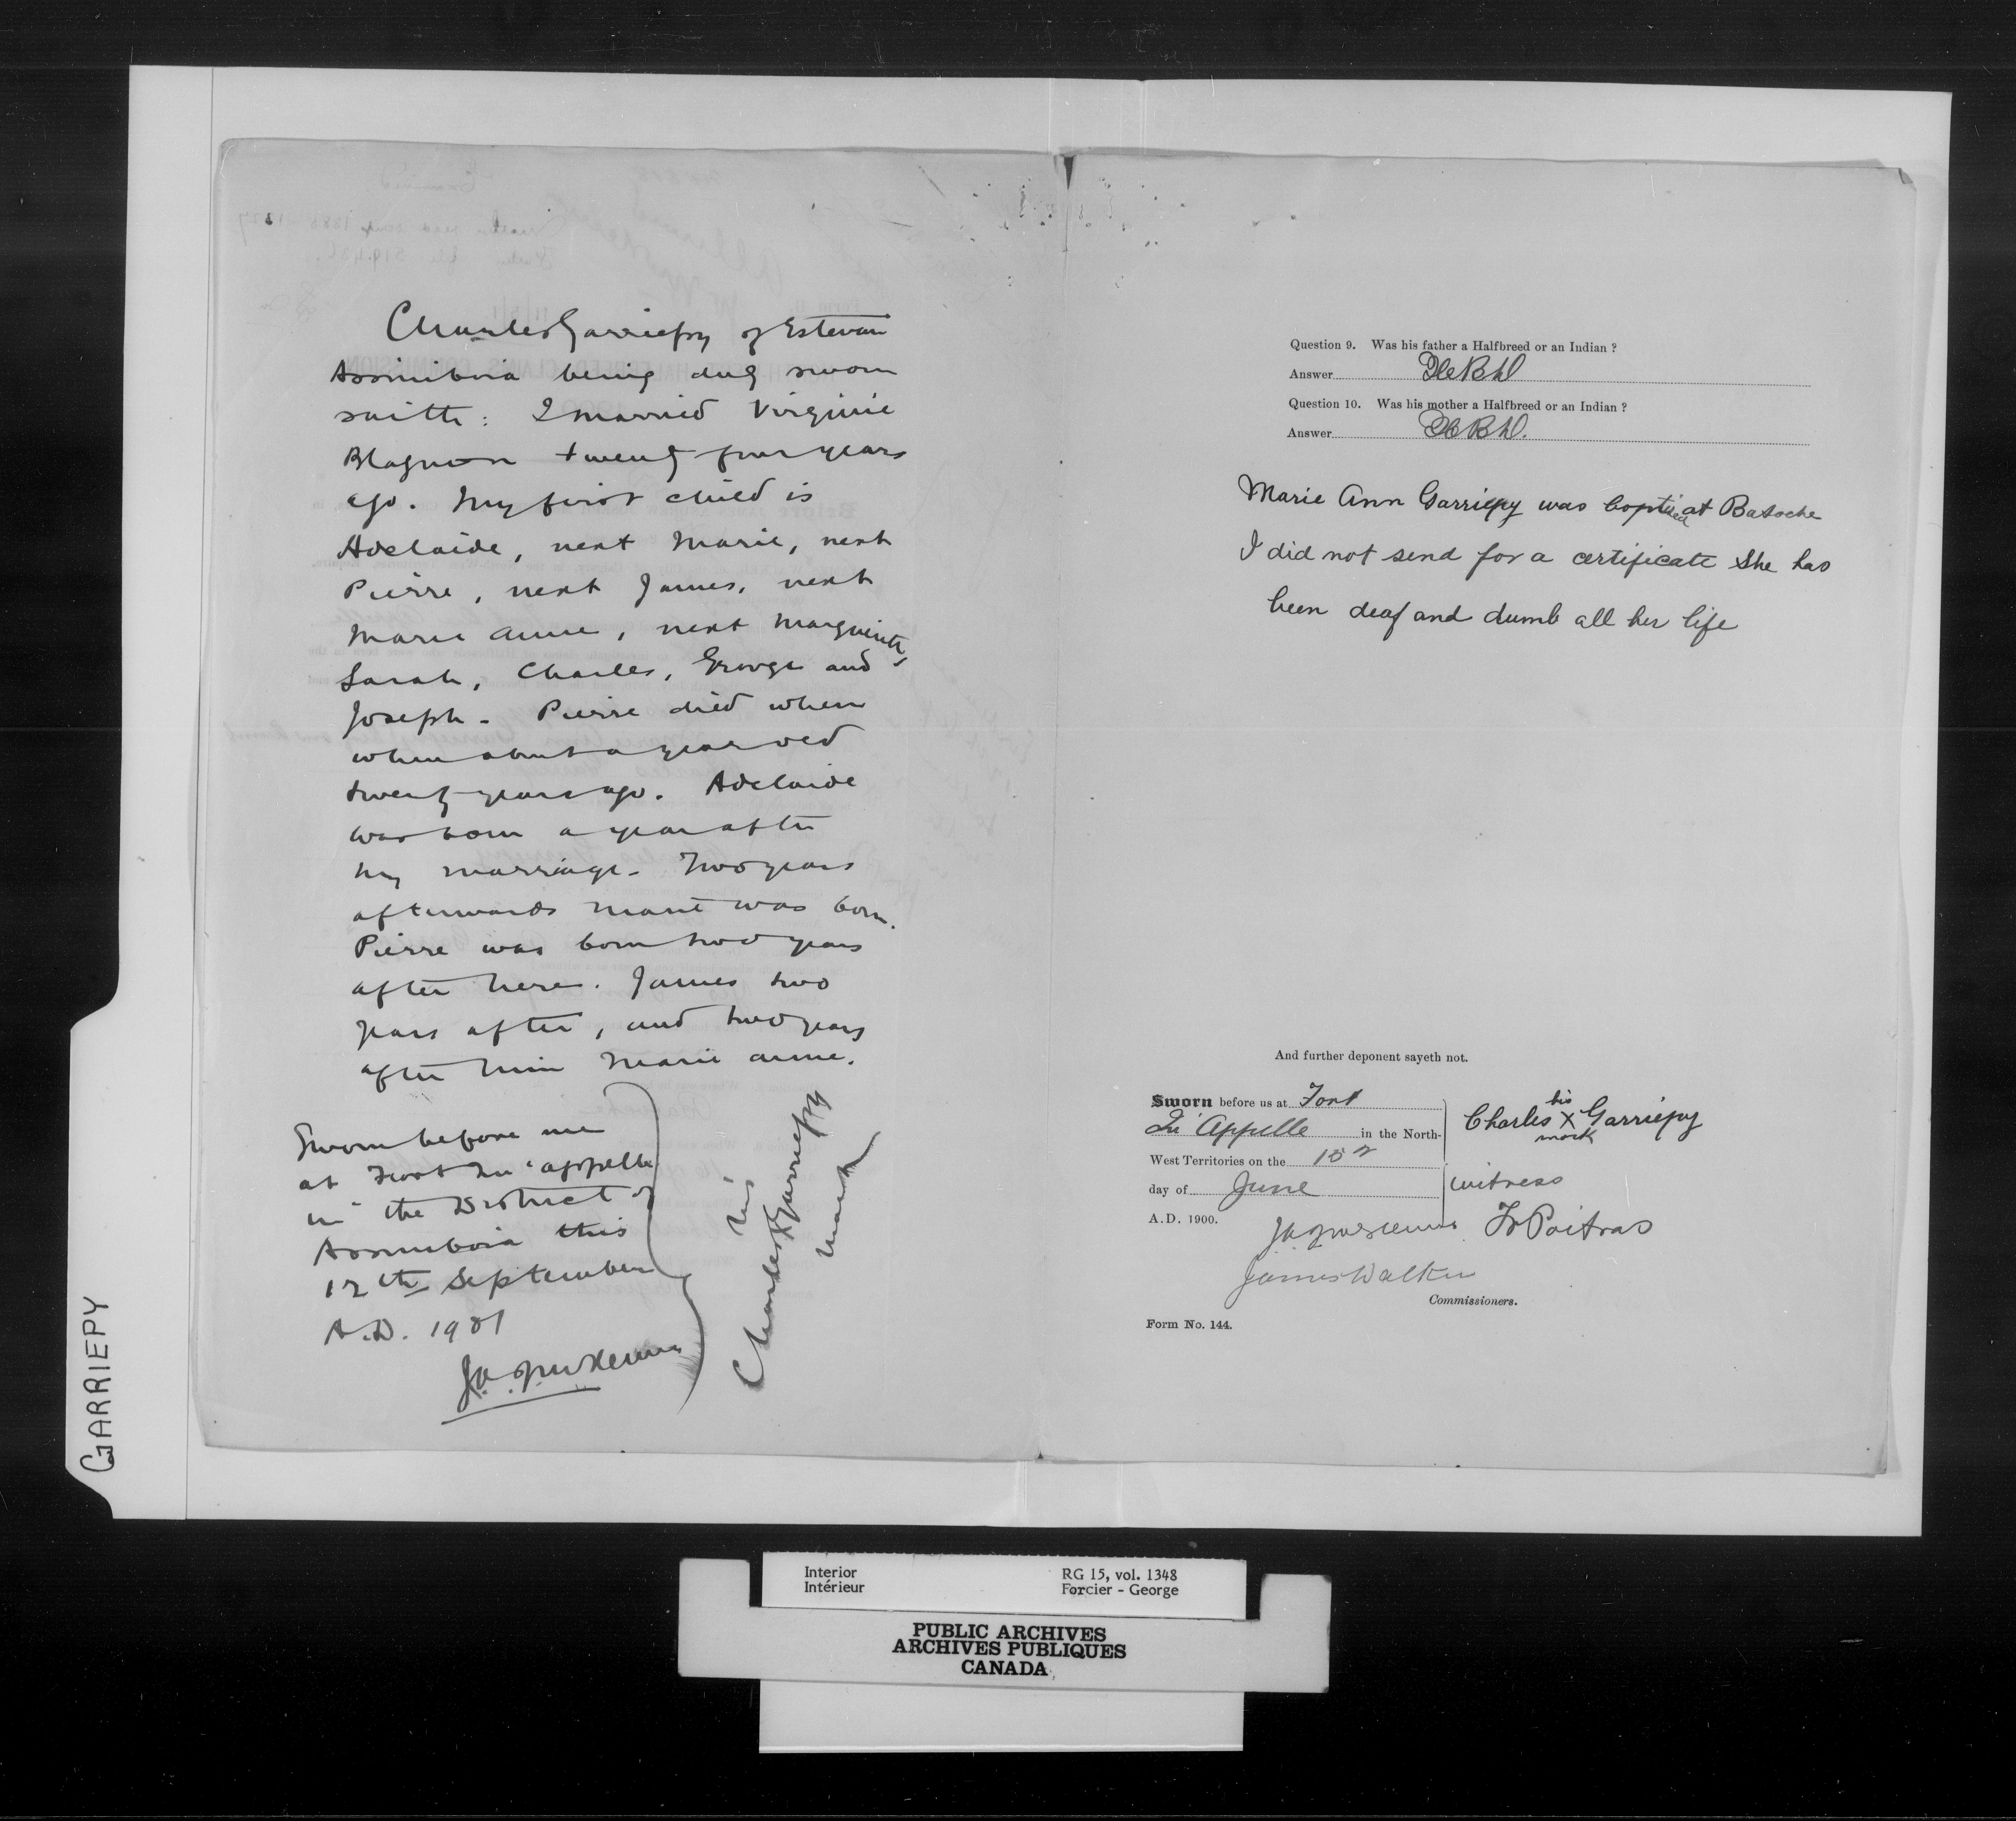 Charles Garriepy of Estevan
Assiniboia being duly sworn
saith: I married Virginie
Blagnon twenty four years
ago. My first child is
Adelaide, next Marie, next
Pierre, next James, next
Marie Anne, next Marguerite,
Sarah, Charles, George and
Joseph. Pierre died when
when about a year old
twenty years ago. Adelaide
was born a year after
my marriage. Two years
afterwards Marie was born.
Pierre was born two years
after here. James two
years after, and two years
after him Marie Anne.
Sworn before me
at Fort Qu'appelle
in the District of
Assiniboia this
12th September
A.D. 1901
his
Charles X Garriepy
mark
Question 9. Was his father a Halfbreed or an Indian ?
Answer
Question 10. Was his mother a Halfbreed or an Indian ?
Answer
Marie Ann Garriepy was baptised at Batoche
I did not send for a certificate She has
been deaf and dumb all her life
And further deponent sayeth not.
Sworn before us at Fort
Qu'Appelle in the North-
West Territories on the
day of June
A.D. 1900.
his
Charles X Garriepy
mark
witness
Poitras
James Walker
Commissioners.
Form No. 144.
GARRIEPY
Interior
Intérieur
RG 15, vol. 1348
Forcier - George
PUBLIC ARCHIVES
ARCHIVES PUBLIQUES
CANADA